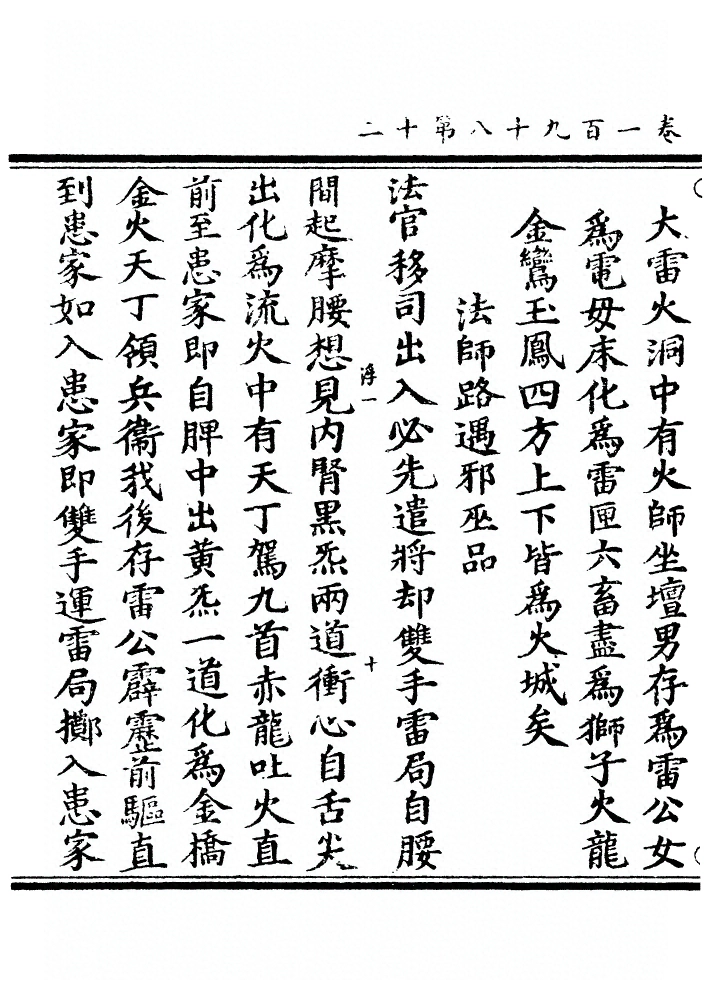 卷一百九十八第十二
大雷火洞中有火師坐壇男存為雷公女
為電毋床化為雷匣六畜盡為獅子火龍
金鸞玉鳳四方上下皆為火城矣
法師路遇邪巫品
法官移司出入必先遣將却雙手雷局自腰
間起摩腰想見内腎黑炁兩道衝心自舌尖
浮一
十
出化為流火中有天丁駕九首赤龍吐火直
前至患家即自脾中出黃炁一道化為金橋
金火天丁領兵衞我後存雷公霹靂前驅直
到患家如入患家即雙手運雷局擲入患家